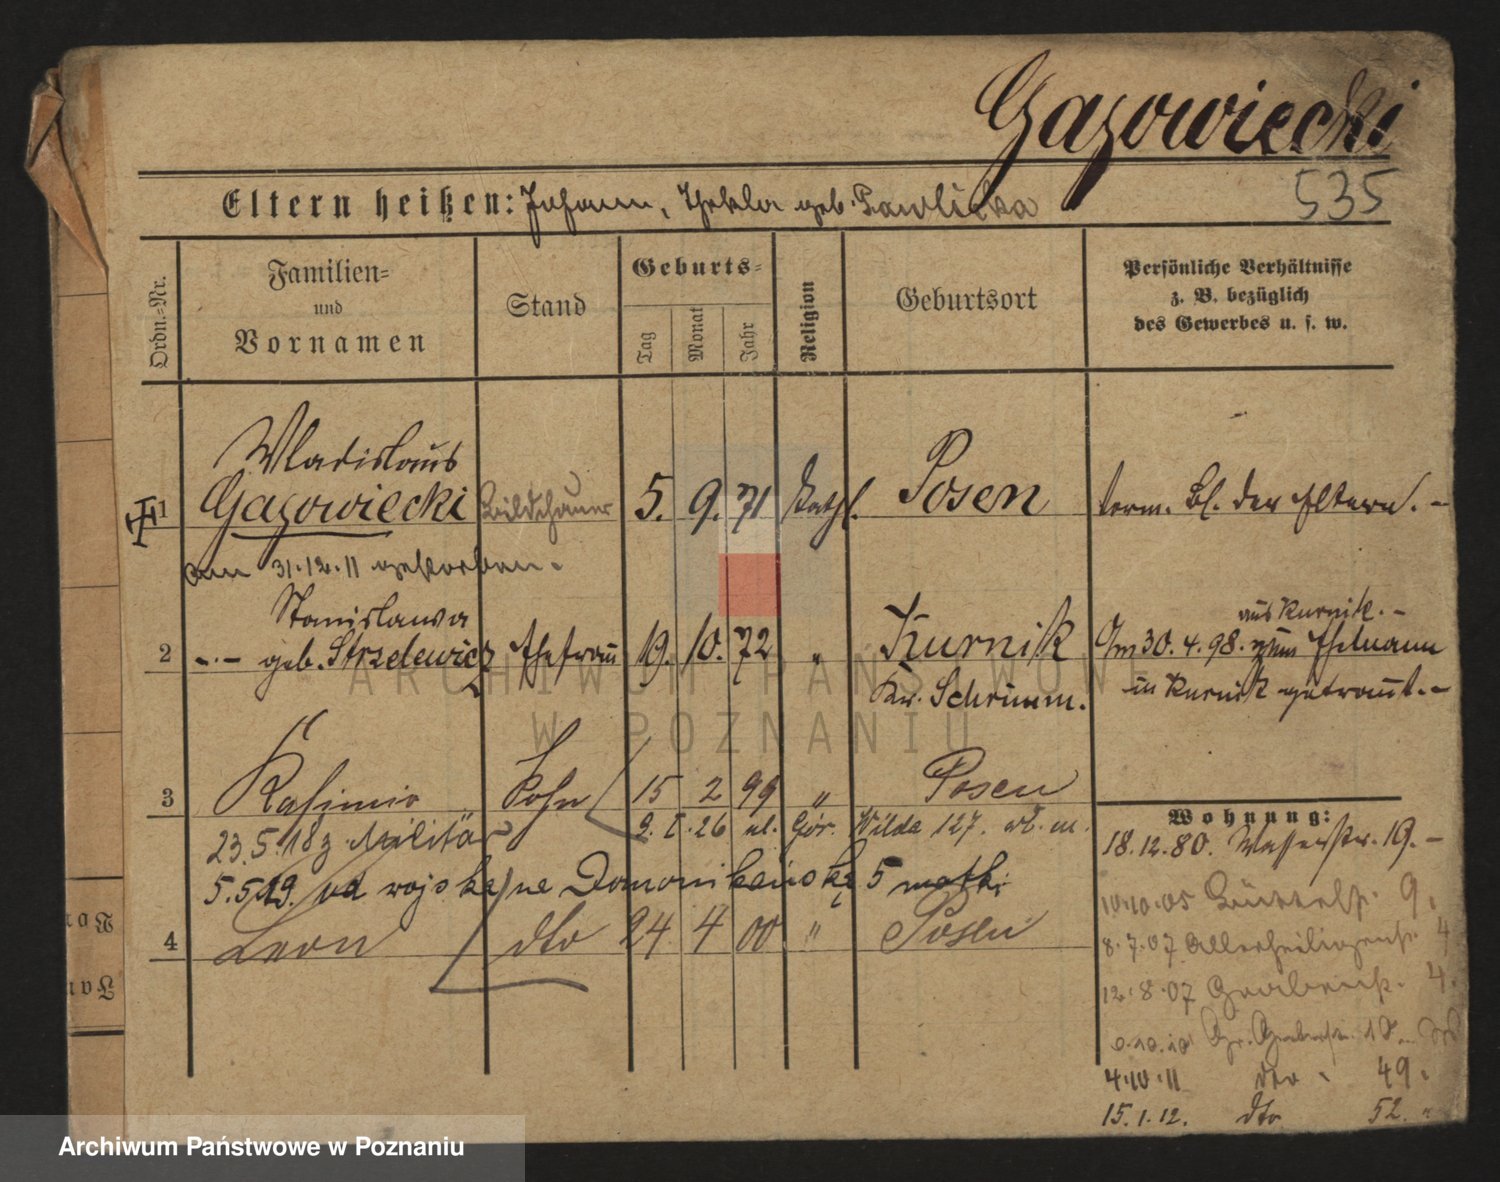 Gazowiecki
535
Eltern heißen: Johann, Thekla geb. Pawlicka
Ordn.=Nr.
Familien=
und
Vornamen
Stand
Geburts=
Tag
Monat
Jahr
Religion
Geburtsort
Persönliche Verhältnisse
z. B. bezüglich
des Gewerbes u. s. w.
Wladislaus
1 Gazowiecki Bildhauer 5. 9. 71 kath. Posen term. Bl. der Eltern. -
am 31.12.11 gestorben.
Stanislawa
aus Kurnik. -
2 -.- geb. Strzelewicz Ehefrau 19. 10. 72 " Kurnik Am 30.4.98. zum Ehemann
Kr. Schrimm. in Kurnik getraut. -
3 Kasimir Sohn 15 2 99 " Posen
23.5.18 z Militär 2. I. 26 ul. Gór. Wilda 127. wł. m.
Wohnung:
18.12.80. Wasserstr. 19. -
5.5.19. od wojska na Domonikańską 5 matki
4 Leon dto 24 4 00 " Posen
10.10.05 Büttelstr. 9.
8.7.07 Allerheiligenstr. 4
12.8.07 Grabenstr. 4.
10.10 Gr.
4.10.11 dto 49.
15.1.12. dto 52. "
ARCHIWUM PAŃSTWOWE
W POZNANIU
Archiwum Państwowe w Poznaniu